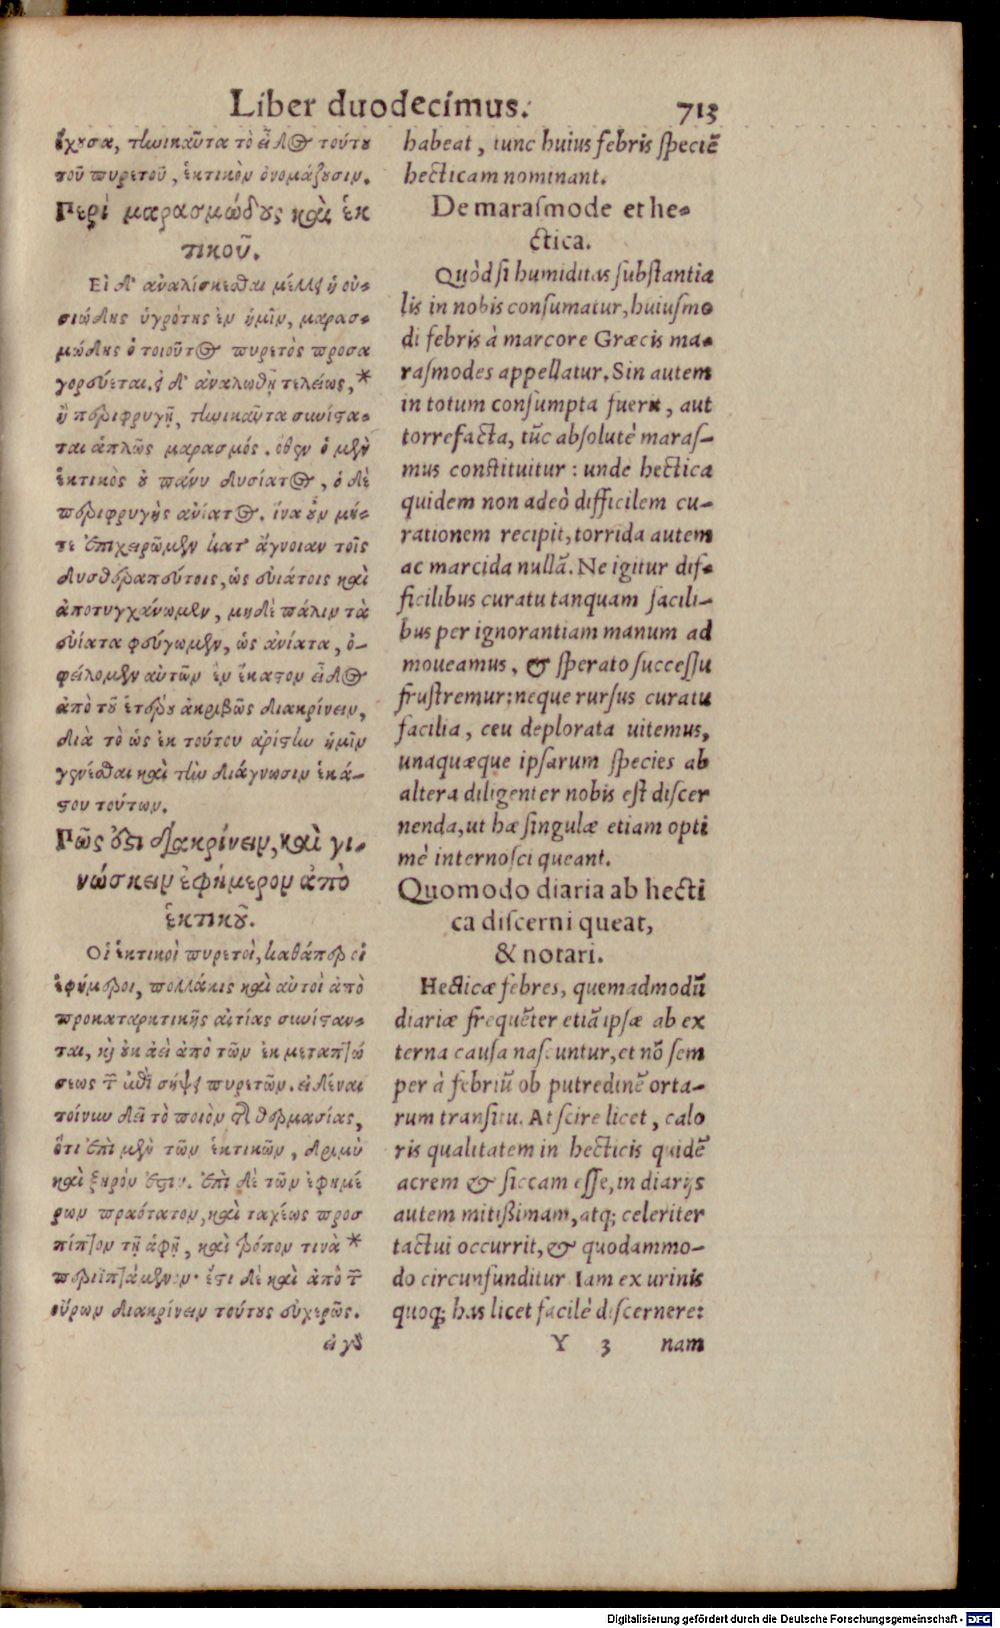 Liber duodecimus. 713
ἔχουσα, τηνικαῦτα τὸ εἶδος τούτου
τοῦ πυρετοῦ, ἑκτικὸν ὀνομάζουσιν.
Περὶ μαρασμώδους καὶ ἑκ
τικοῦ.
Εἰ δ' ἀναλίσκεσθαι μέλλει ἡ οὐ-
σιώδης ὑγρότης ἐν ἡμῖν, μαρασ-
μώδης ὁ τοιοῦτος πυρετὸς προσα
γορεύεται. εἰ δ' ἀναλωθῇ τελείως, *
ἢ περιφρυγῇ, τηνικαῦτα συνίστα-
ται ἁπλῶς μαρασμός. ὅθεν ὁ μὲν
ἑκτικὸς οὐ πάνυ δυσίατος, ὁ δὲ
περιφρυγὴς ἀνίατος. ἵνα οὖν μή-
τε ἐπιχειρῶμεν κατ' ἄγνοιαν τοῖς
δυσθεραπεύτοις, ὡς εὐιάτοις καὶ
ἀποτυγχάνωμεν, μηδὲ πάλιν τὰ
εὐίατα φεύγωμεν, ὡς ἀνίατα, ὀ-
φείλομεν αὐτῶν ἐν ἕκαστον εἶδος
ἀπὸ τοῦ ἑτέρου ἀκριβῶς διακρίνειν,
διὰ τὸ ὡς ἐκ τούτου ἀρίστην ἡμῖν
γενέσθαι καὶ τὴν διάγνωσιν ἑκά-
στου τούτων.
Πῶς δεῖ διακρίνειν, καὶ γι-
νώσκειν ἐφήμερον ἀπὸ
ἑκτικοῦ.
Οἱ ἑκτικοὶ πυρετοὶ, καθάπερ οἱ
ἐφήμεροι, πολλάκις καὶ αὐτοὶ ἀπὸ
προκαταρκτικῆς αἰτίας συνίσταν-
ται, καὶ οὐκ ἀεὶ ἀπὸ τῶν ἐκ μεταπτώ
σεως τῶν ἐπὶ σήψει πυρετῶν. εἰδέναι
τοίνυν δεῖ τὸ ποιὸν τῆς θερμασίας,
ὅτι ἐπὶ μὲν τῶν ἑκτικῶν, δριμὺ
καὶ ξηρόν ἐστιν. ἐπὶ δὲ τῶν ἐφημέ
ρων πραότατον, καὶ ταχέως προσ
πίπτον τῇ ἁφῇ, καὶ τρόπον τινὰ *
περιϊπτάμενον· ἔτι δὲ καὶ ἀπὸ τῶν
οὔρων διακρίνειν τούτους εὐχερῶς.
εἰ γὰρ
habeat, tunc huius febris speciē
hecticam nominant.
De marasmode et he-
ctica.
Quòd si humiditas substantia
lis in nobis consumatur, huiusmo
di febris à marcore Græcis ma-
rasmodes appellatur. Sin autem
in totum consumpta fuerit, aut
torrefacta, tūc absolutè maras-
mus constituitur: unde hectica
quidem non adeò difficilem cu-
rationem recipit, torrida autem
ac marcida nullā. Ne igitur dif-
ficilibus curatu tanquam facili-
bus per ignorantiam manum ad
moueamus, & sperato successu
frustremur: neque rursus curatu
facilia, ceu deplorata uitemus,
unaquæque ipsarum species ab
altera diligenter nobis est discer
nenda, ut hæ singulæ etiam opti
mè internosci queant.
Quomodo diaria ab hecti
ca discerni queat,
& notari.
Hecticæ febres, quemadmodū
diariæ frequēter etiā ipsæ ab ex
terna causa nascuntur, et nō sem
per à febriū ob putredinē orta-
rum transitu. At scire licet, calo
ris qualitatem in hecticis quidē
acrem & siccam esse, in diarijs
autem mitißimam, atq; celeriter
tactui occurrit, & quodammo-
do circunfunditur Iam ex urinis
quoq; has licet facilè discernere:
Y 3 nam
Digitalisierung gefördert durch die Deutsche Forschungsgemeinschaft - DFG